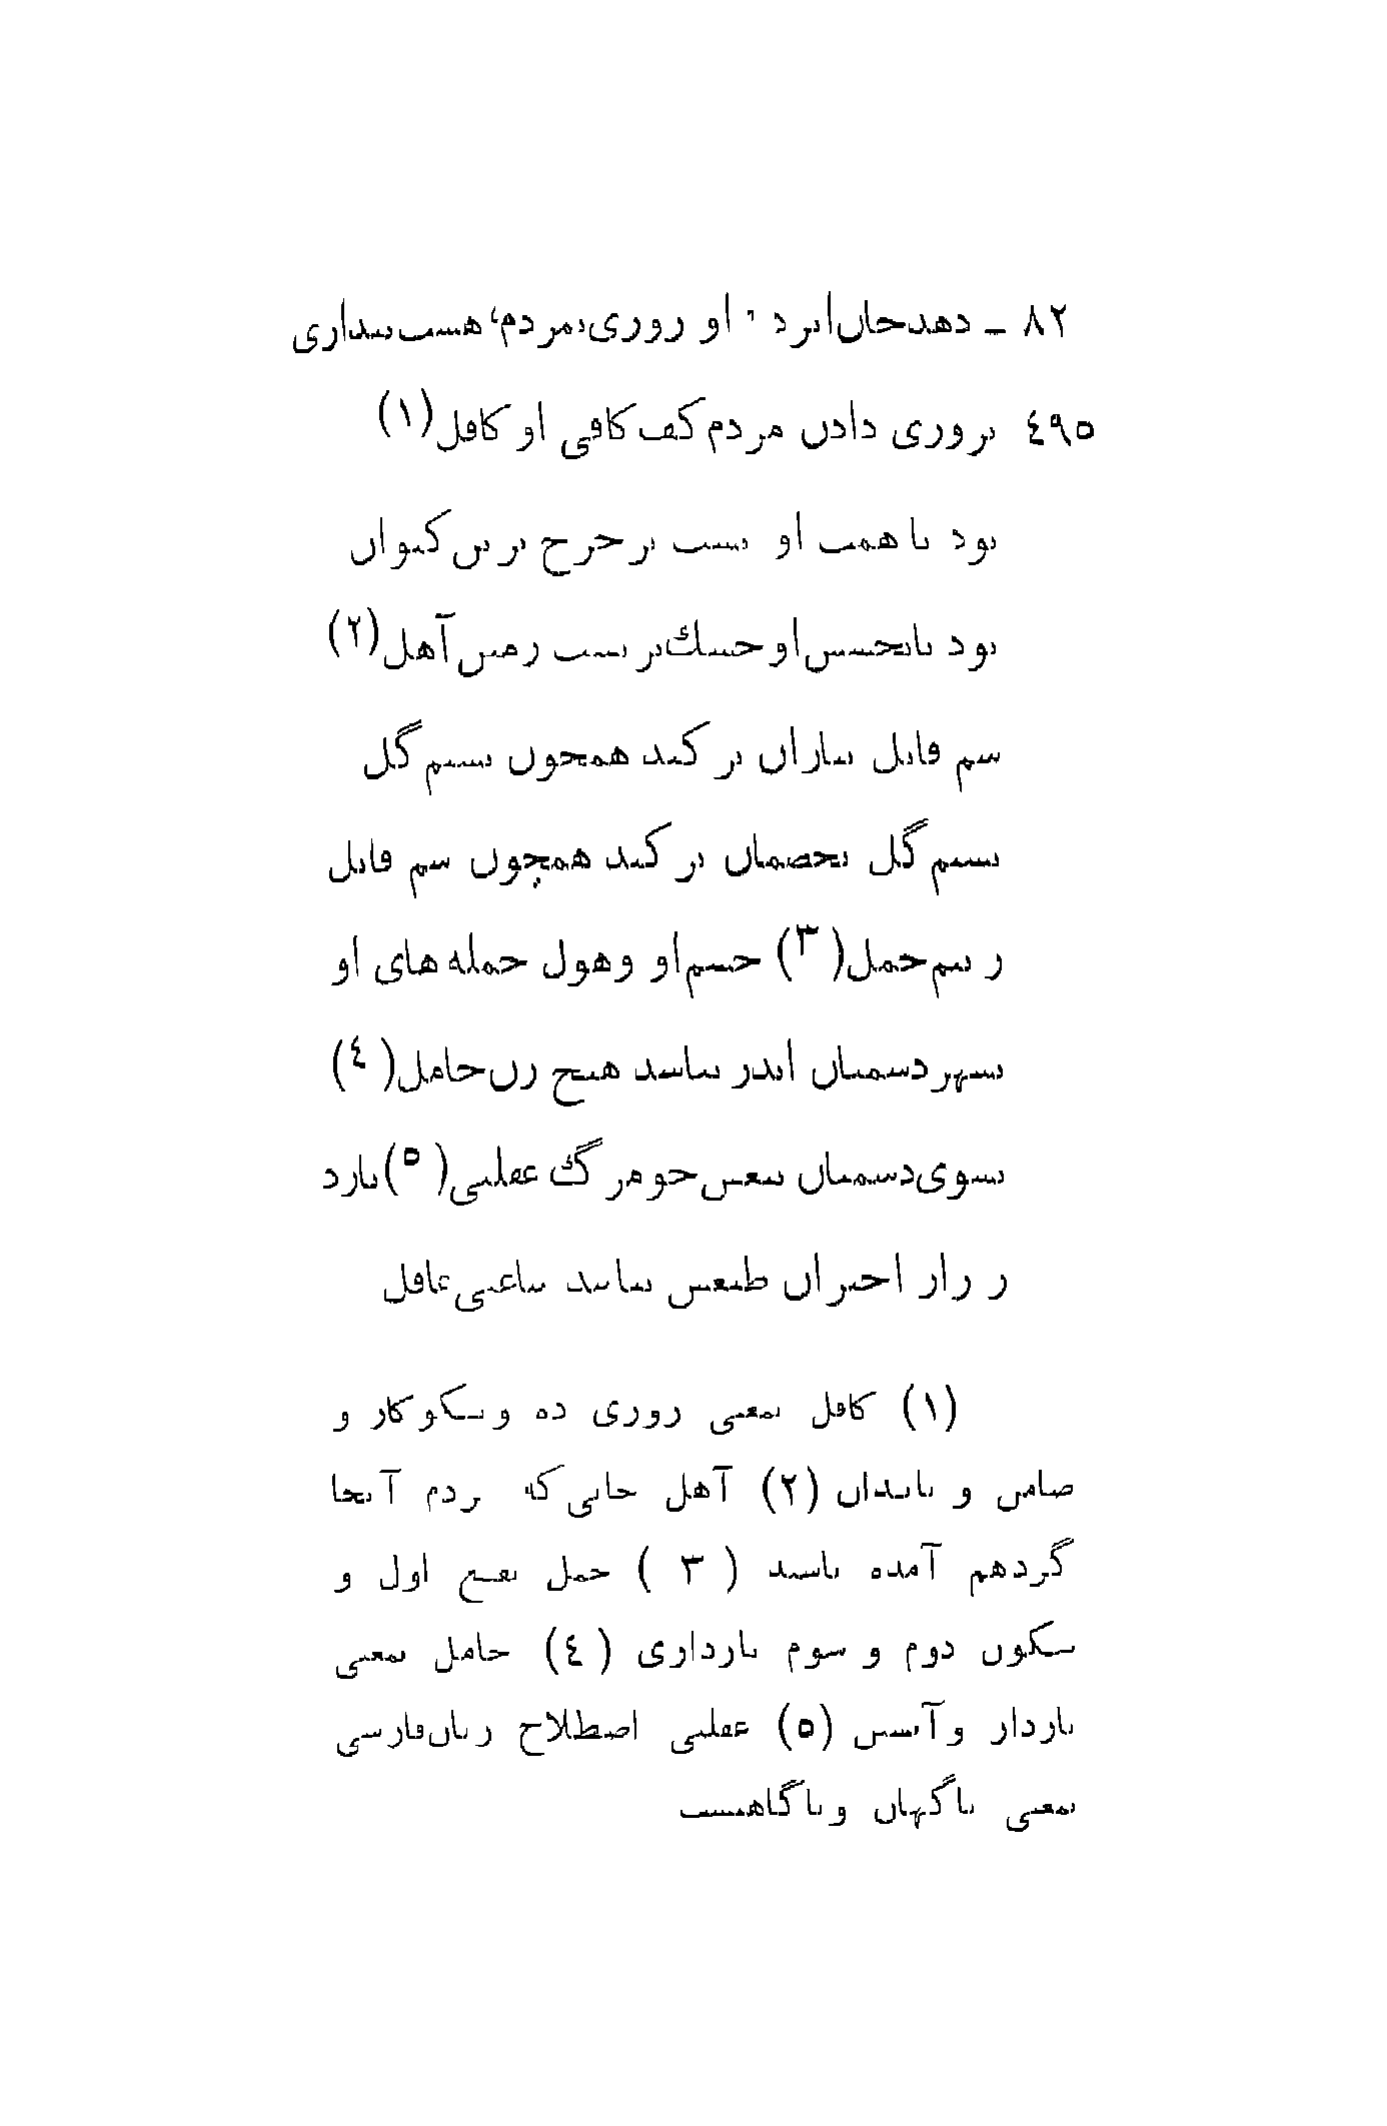 ۸۲ ـ دهد جان ایزد و او روزی بمردم، هست پنداری
٤۹٥ بروزی دادن مردم کف کافی او کافل (۱)
بود با همت او پست بر چرخ برین کیوان
بود بابخشش او خشك بر پشت زمین آهل (۲)
سم قاتل بیاران بر کند همچون نسیم گل
نسیم گل بخصمان بر کند همچون سم قاتل
ز بیم حمل (۳) خشم او و هول حمله های او
بشهر دشمنان اندر نباشد هیچ زن حامل (٤)
بسوی دشمنان تیغش چو مرگ غفلتی (٥) یازد
ز راز اختران طبعش نباشد ساعتی غافل
(۱) کافل بمعنی روزی ده و نیکوکار و
ضامن و پایندان (۲) آهل جایی که مردم آنجا
گرد هم آمده باشند (۳) حمل بفتح اول و
سکون دوم و سوم بارداری (٤) حامل بمعنی
باردار و آبستن (٥) غفلتی اصطلاح زبان فارسی
بمعنی ناگهان و ناگاهست